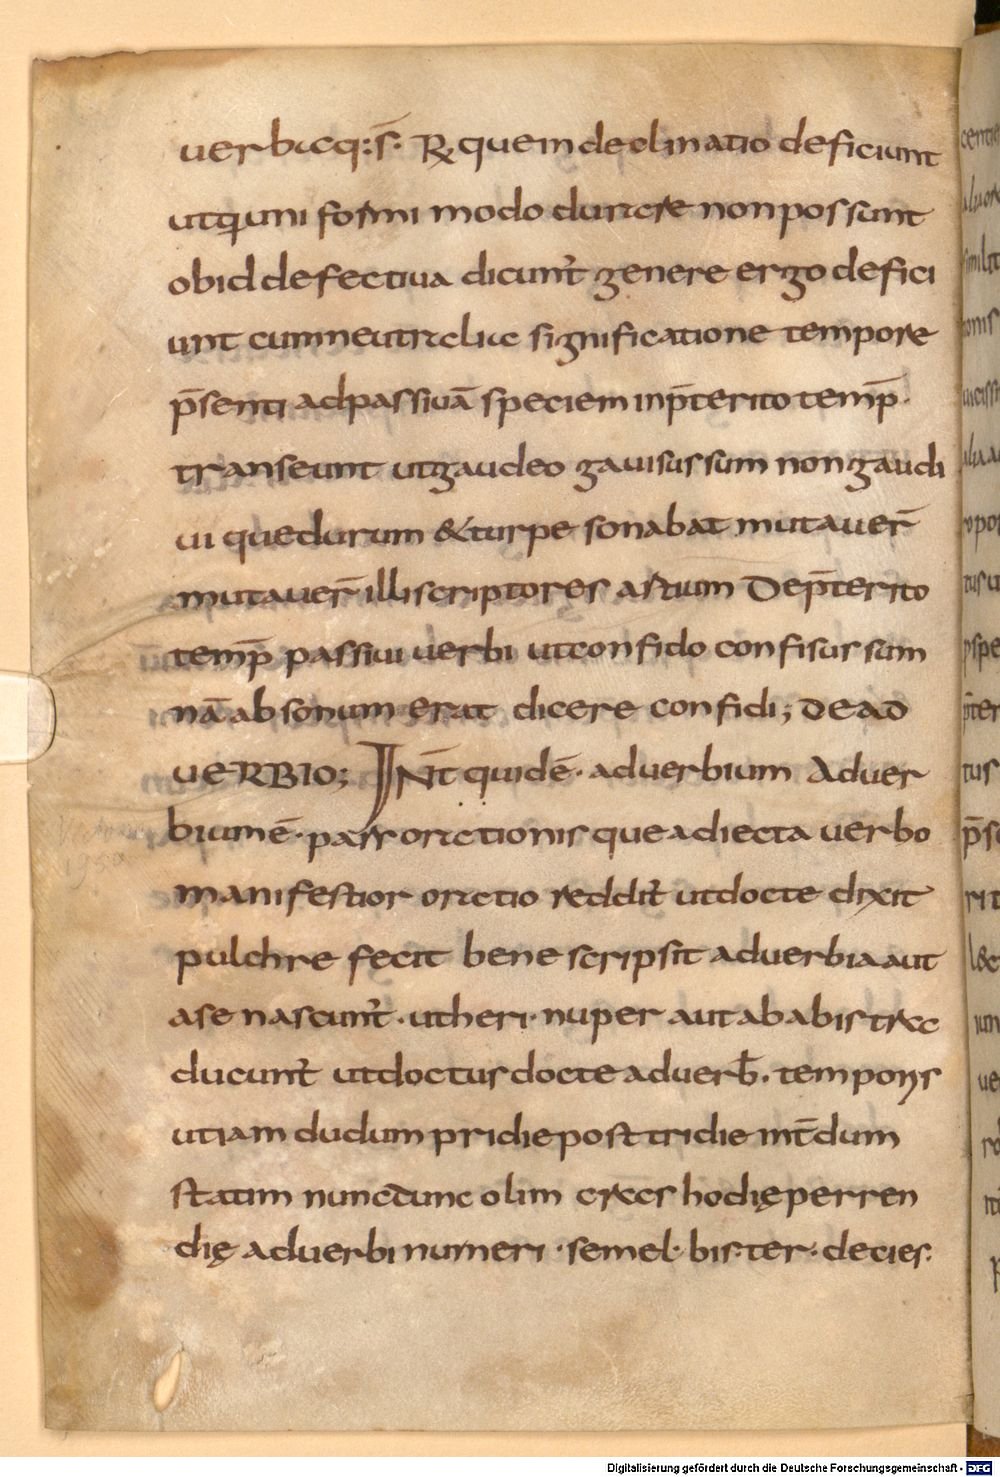 uerbicq:s̄· R quem deolinatio deficiunt
utquni formi modo durare non possunt
obid defectiua dicunt̄ genere ergo defici
unt cum neutrali uc significatione tempore
p̄senti ad passiuā speciem inp̄terito temp̄·
transeunt ut gaudeo gauisus sum non gaudi
ui que durum & turpe sonabat mutauer̄
mutauer̄ illi scriptores astium De p̄terito
temp̄ passiui uerbi ut confido confisus sum
nā absonum erat dicere confidi; DE AD
UERBIO; INT̄ quidē· aduerbium Aduer
bium ē· pars orationis que adiecta uerbo
manifestior oratio reddit̄ ut docte dixit
pulchre fecit bene scripsit aduerbia aut
a se nascunt̄· ut heri· nuper aut ab abis trac
ducunt̄ ut doctus docte aduerb̄· temporis
ut iam dudum pridie post tridie int̄dum
statim nunc tunc olim cras hodię perren
dię aduerbi numeri· semel· bis· ter· decies·
Digitalisierung gefördert durch die Deutsche Forschungsgemeinschaft - DFG